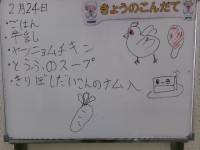 きょうのこんだて
2月24日
・ごはん
・牛乳
・ヤーンニョムチキン
・とうふのスープ
・きりぼしだいこんのナムル